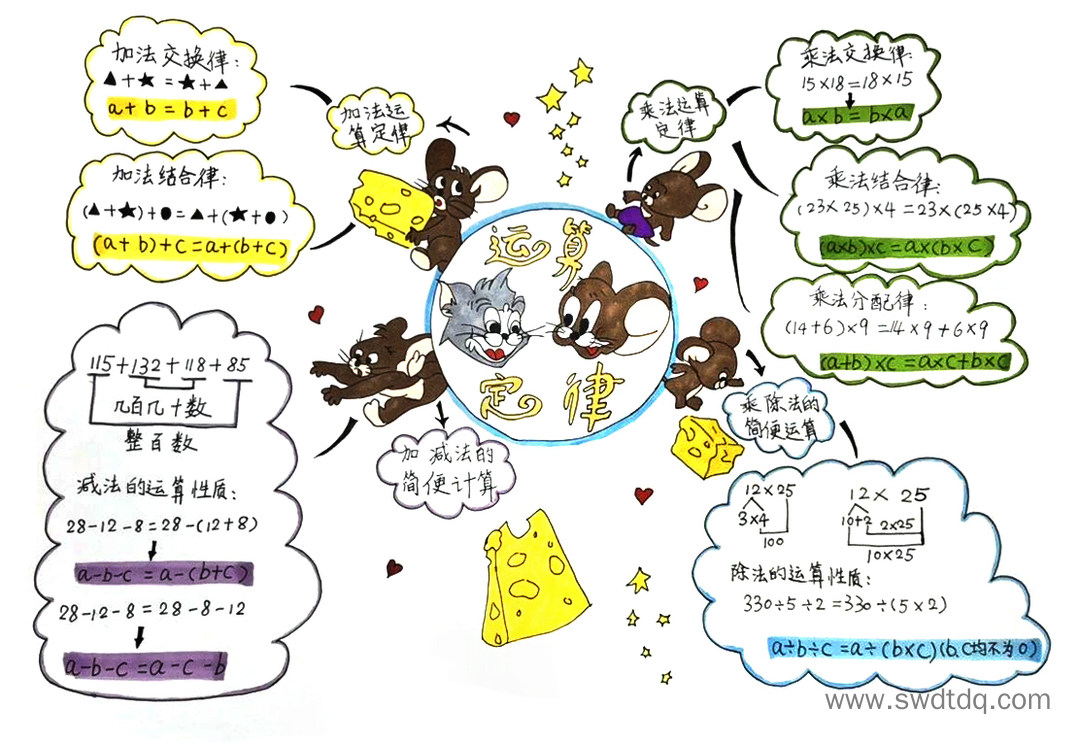 加法交换律:
▲+★=★+▲
a+b=b+c
加法运
算定律
加法结合律:
(▲+★)+●=▲+(★+●)
(a+b)+c=a+(b+c)
乘法运算
定律
乘法交换律:
15×18=18×15
a×b=b×a
乘法结合律:
(23×25)×4=23×(25×4)
(a×b)×c=a×(b×c)
乘法分配律:
(14+6)×9=14×9+6×9
(a+b)×c=a×c+b×c
运算
定律
115+132+118+85
几百几十数
整百数
减法的运算性质:
28-12-8=28-(12+8)
a-b-c=a-(b+c)
28-12-8=28-8-12
a-b-c=a-c-b
加减法的
简便计算
乘除法的
简便运算
12×25
3×4
100
12×25
10+2
2×25
10×25
除法的运算性质:
330÷5÷2=330÷(5×2)
a÷b÷c=a÷(b×c)(b,c均不为0)
www.swdtdq.com